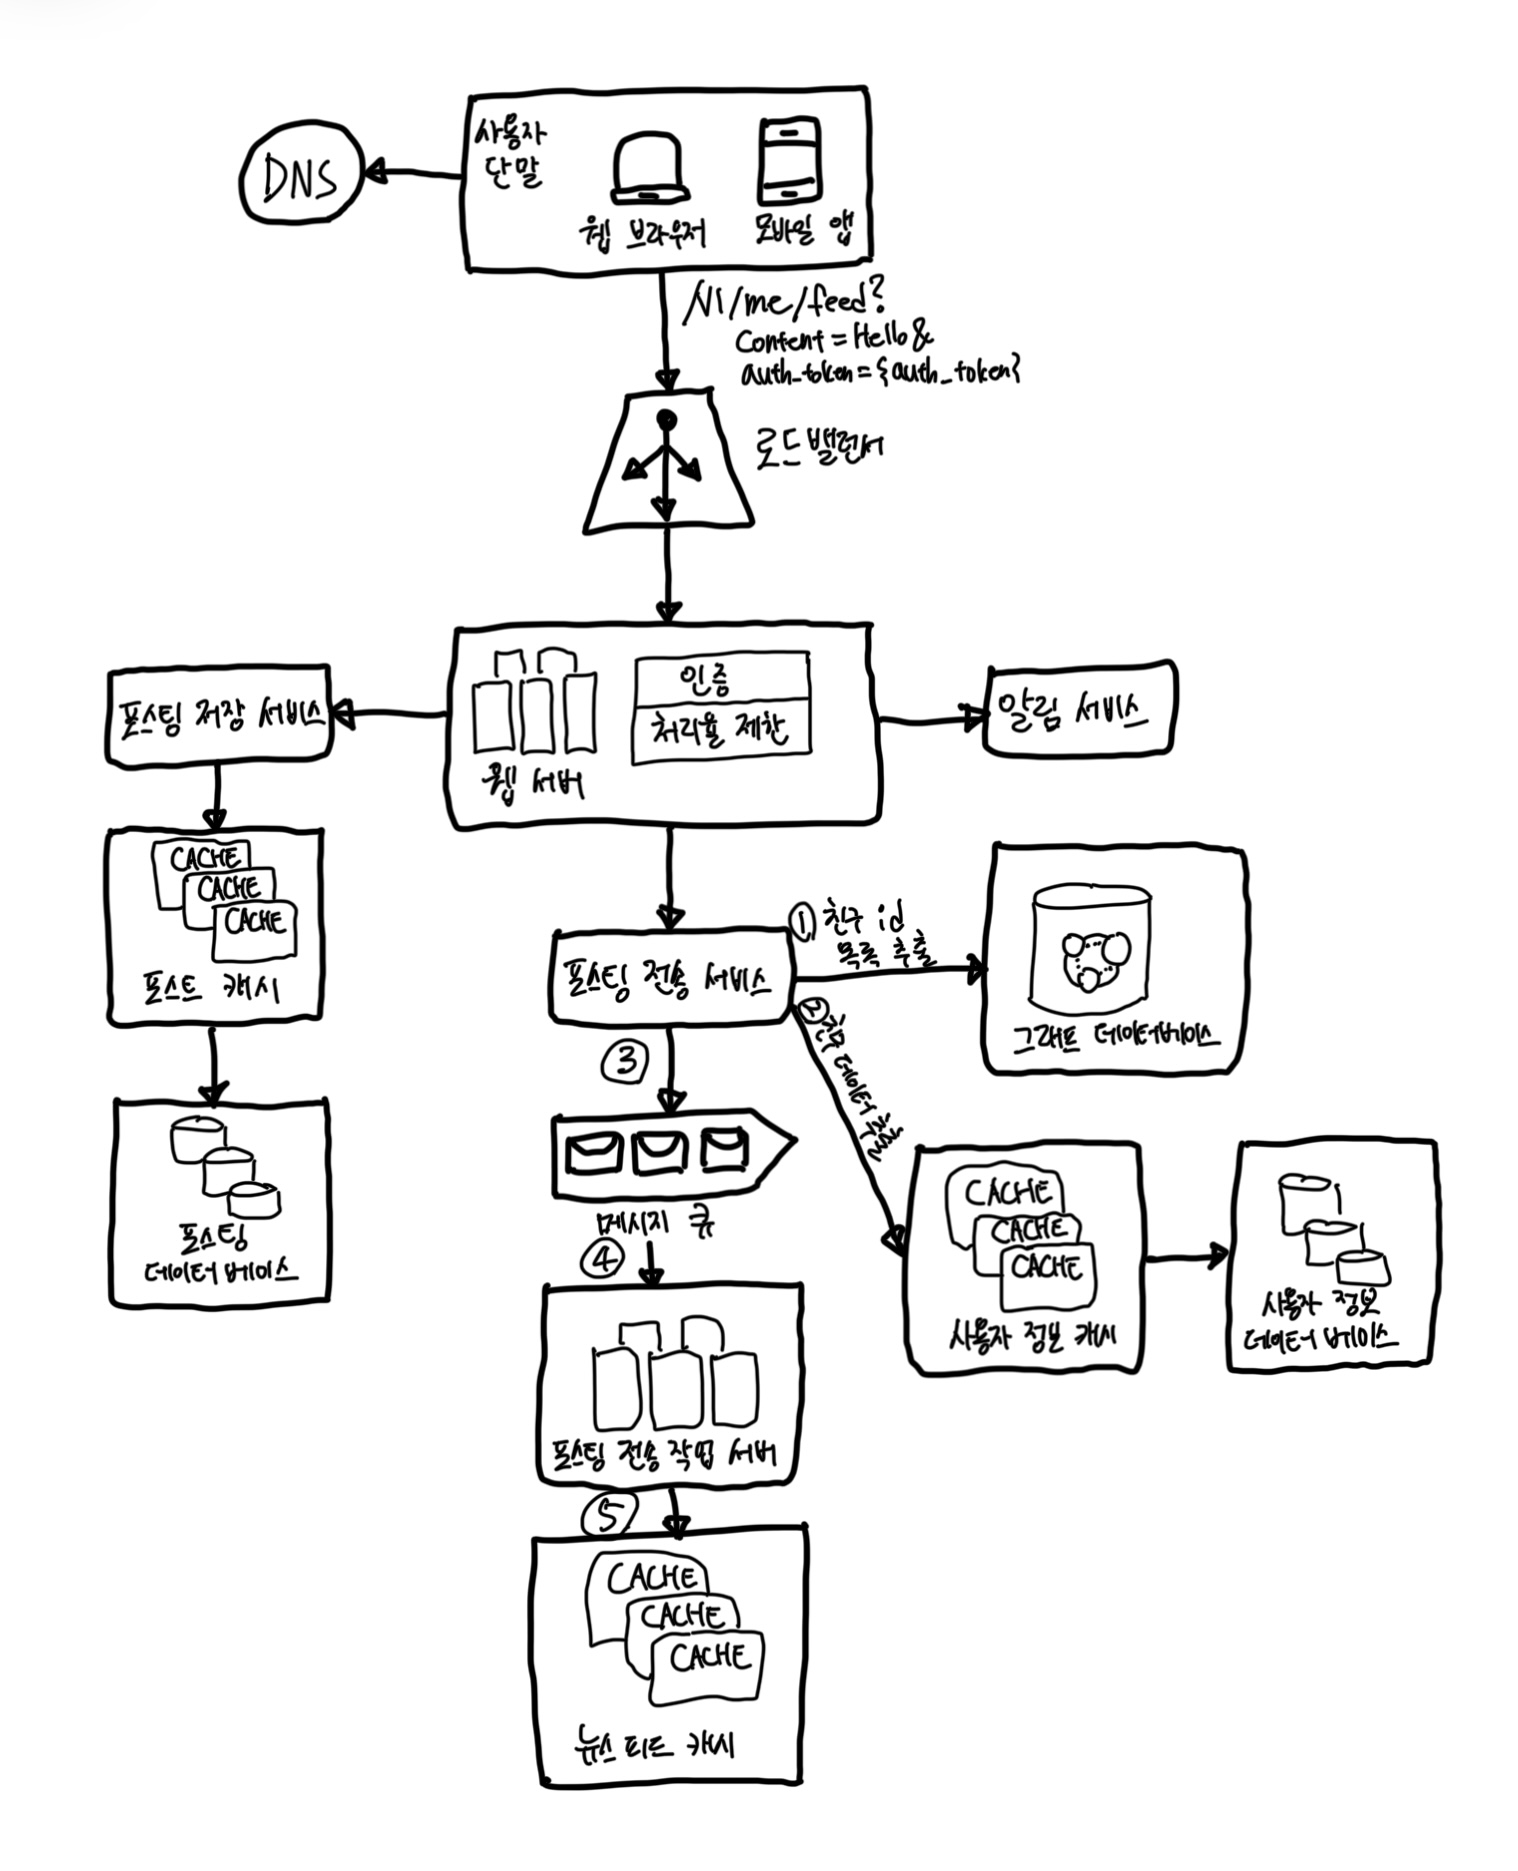 사용자
단말
DNS
웹 브라우저
모바일 앱
/V1/me/feed?
Content=Hello&
auth_token={auth_token}
로드밸런서
포스팅 저장 서비스
인증
처리율 제한
웹 서버
알림 서비스
CACHE
CACHE
CACHE
포스트 캐시
포스팅 전송 서비스
① 친구 id
목록 추출
그래프 데이터베이스
② 친구 데이터 추출
③
포스팅
데이터 베이스
메시지 큐
④
CACHE
CACHE
CACHE
사용자 정보 캐시
사용자 정보
데이터 베이스
포스팅 전송 작업 서버
⑤
CACHE
CACHE
CACHE
뉴스 피드 캐시